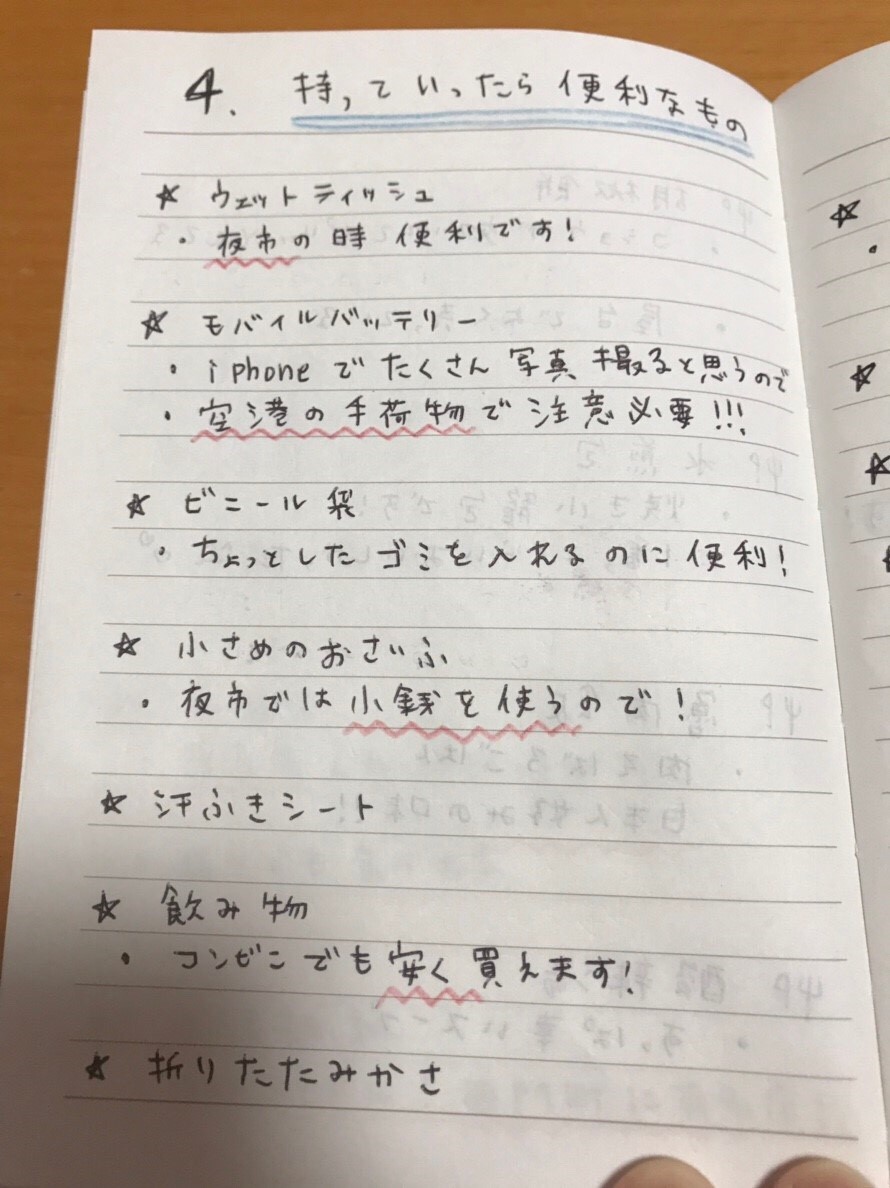 4. 持っていったら便利なもの
☆ ウェットティッシュ
・夜市の時 便利です!
☆ モバイルバッテリー
・iphoneでたくさん写真撮ると思うので
・空港の手荷物で注意必要!!!
☆ ビニール袋
・ちょっとしたゴミを入れるのに便利!
☆ 小さめのおさいふ
・夜市では小銭を使うので!
☆ 汗ふきシート
☆ 飲み物
・コンビニでも安く買えます!
☆ 折りたたみかさ